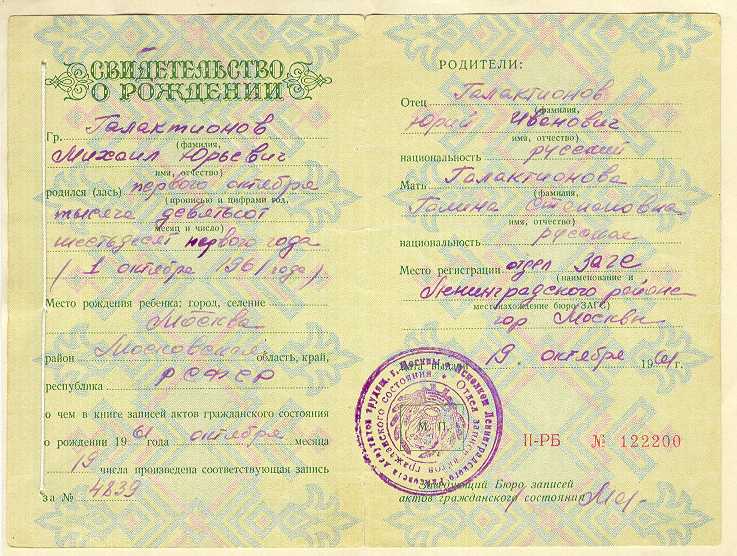 СВИДЕТЕЛЬСТВО
О РОЖДЕНИИ
Гр. Галактионов
(фамилия,
Михаил Юрьевич
имя, отчество)
родился (лась) первого октября
(прописью и цифрами год,
тысяча девятьсот
месяц и число)
шестьдесят первого года
(1 октября 1961 года)
Место рождения ребенка: город, селение
Москва
район Московская область, край,
республика РСФСР
о чем в книге записей актов гражданского состояния
о рождении 1961 года октября месяца
19 числа произведена соответствующая запись
за № 4839
РОДИТЕЛИ:
Отец Галактионов
(фамилия,
Юрий Иванович
имя, отчество)
национальность русский
Мать Галактионова
(фамилия,
Галина
имя, отчество)
национальность русская
Место регистрации отдел ЗАГС
(наименование и
Ленинградского района
местонахождение бюро ЗАГС)
гор Москвы
Дата выдачи 19 октября 1961 г.
М. П.
II-РБ № 122200
Заведующий Бюро записей
актов гражданского состояния